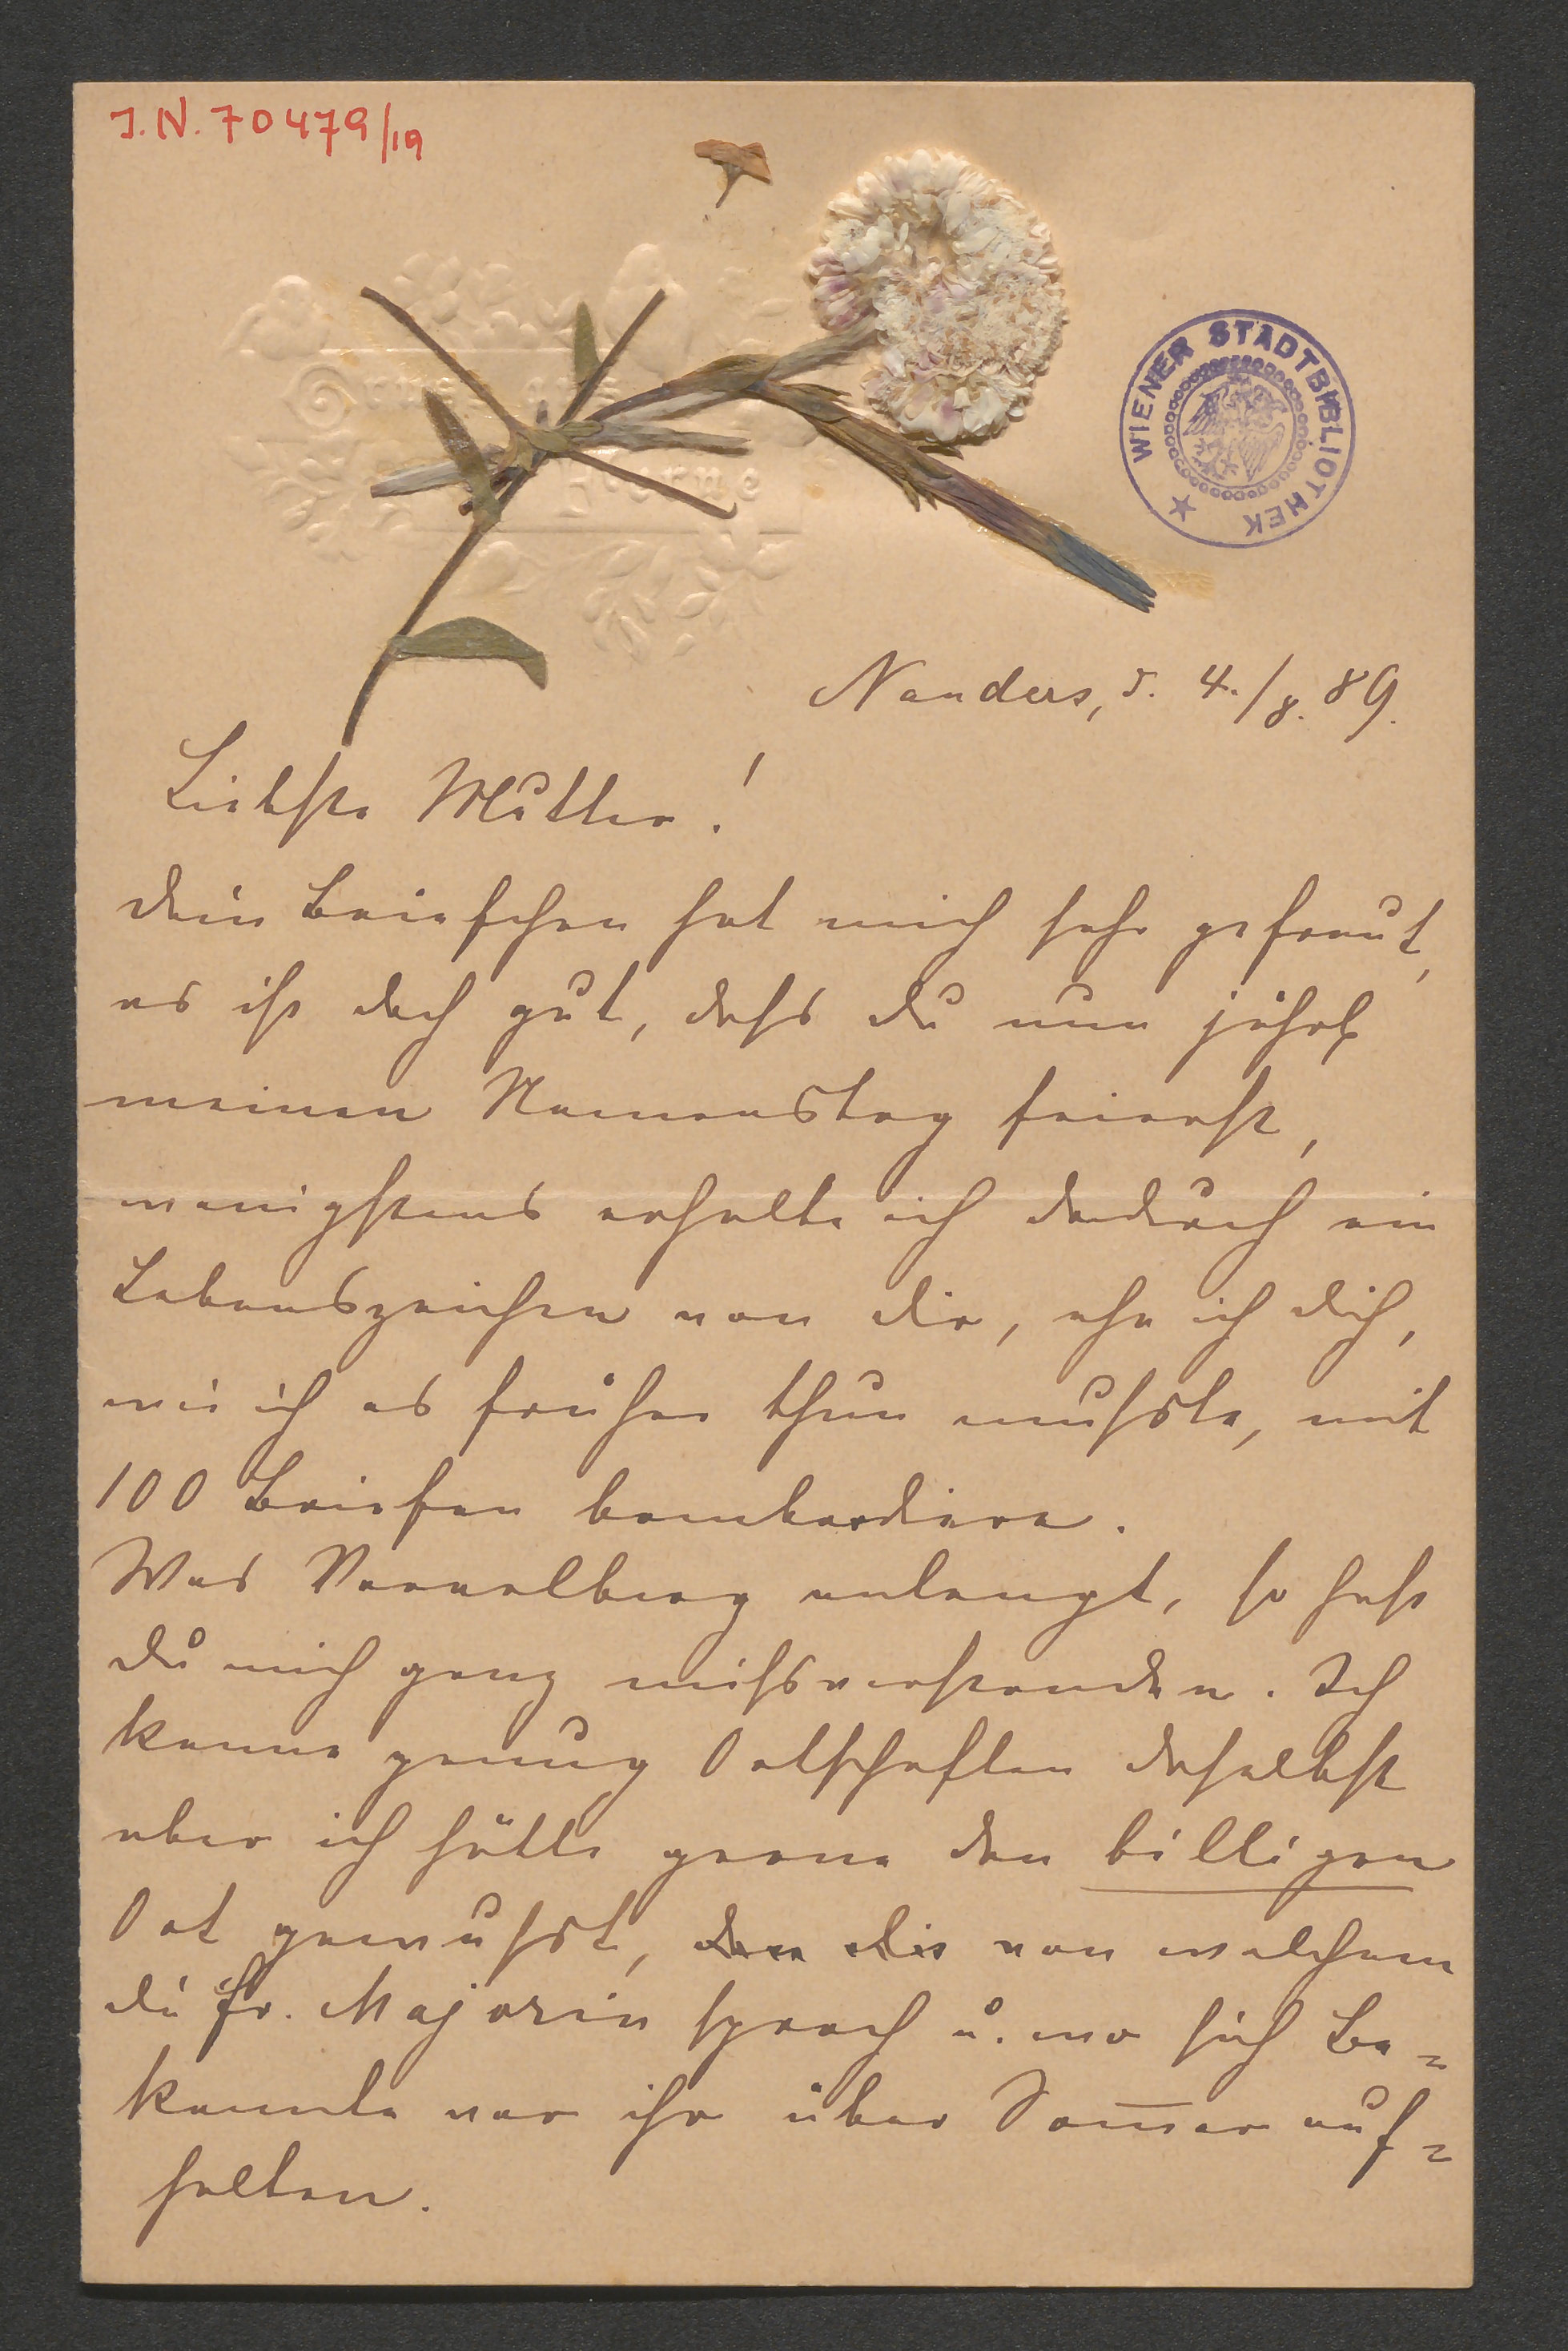 J.N. 70479/19
WIENER STADTBIBLIOTHEK
Nauders, d. 4./8. 89.
Liebste Mutter!
dein Briefchen hat mich sehr gefreut,
es ist doch gut, dass du nun jährl.
meinen Namenstag feierst,
wenigstens erhalte ich dadurch ein
Lebenszeichen von dir, ehe ich dich,
wie ich es früher thun musste, mit
100 Briefen bombardiere.
Was Vorarlberg anlangt, so hast
du mich ganz missverstanden. Ich
kenne genug Ortschaften daselbst
aber ich hätte gerne den billigen
Ort gewusst, den die von welchem
die Fr. Majorin sprach u. wo sich Be=
kannte von ihr über Som̅er auf=
halten.